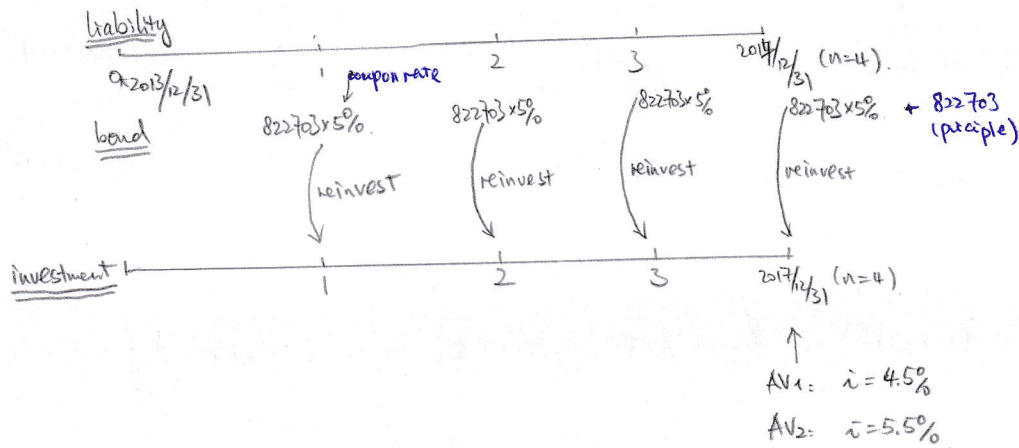 liability
0 2013/12/31 1 2 3 2017/12/31 (n=4).
coupon rate
bond 822703×5%. 822703×5% 822703×5% 822703×5% + 822703
(priciple)
reinvest reinvest reinvest reinvest
investment 1 2 3 2017/12/31 (n=4)
AV1: i=4.5%
AV2: i=5.5%